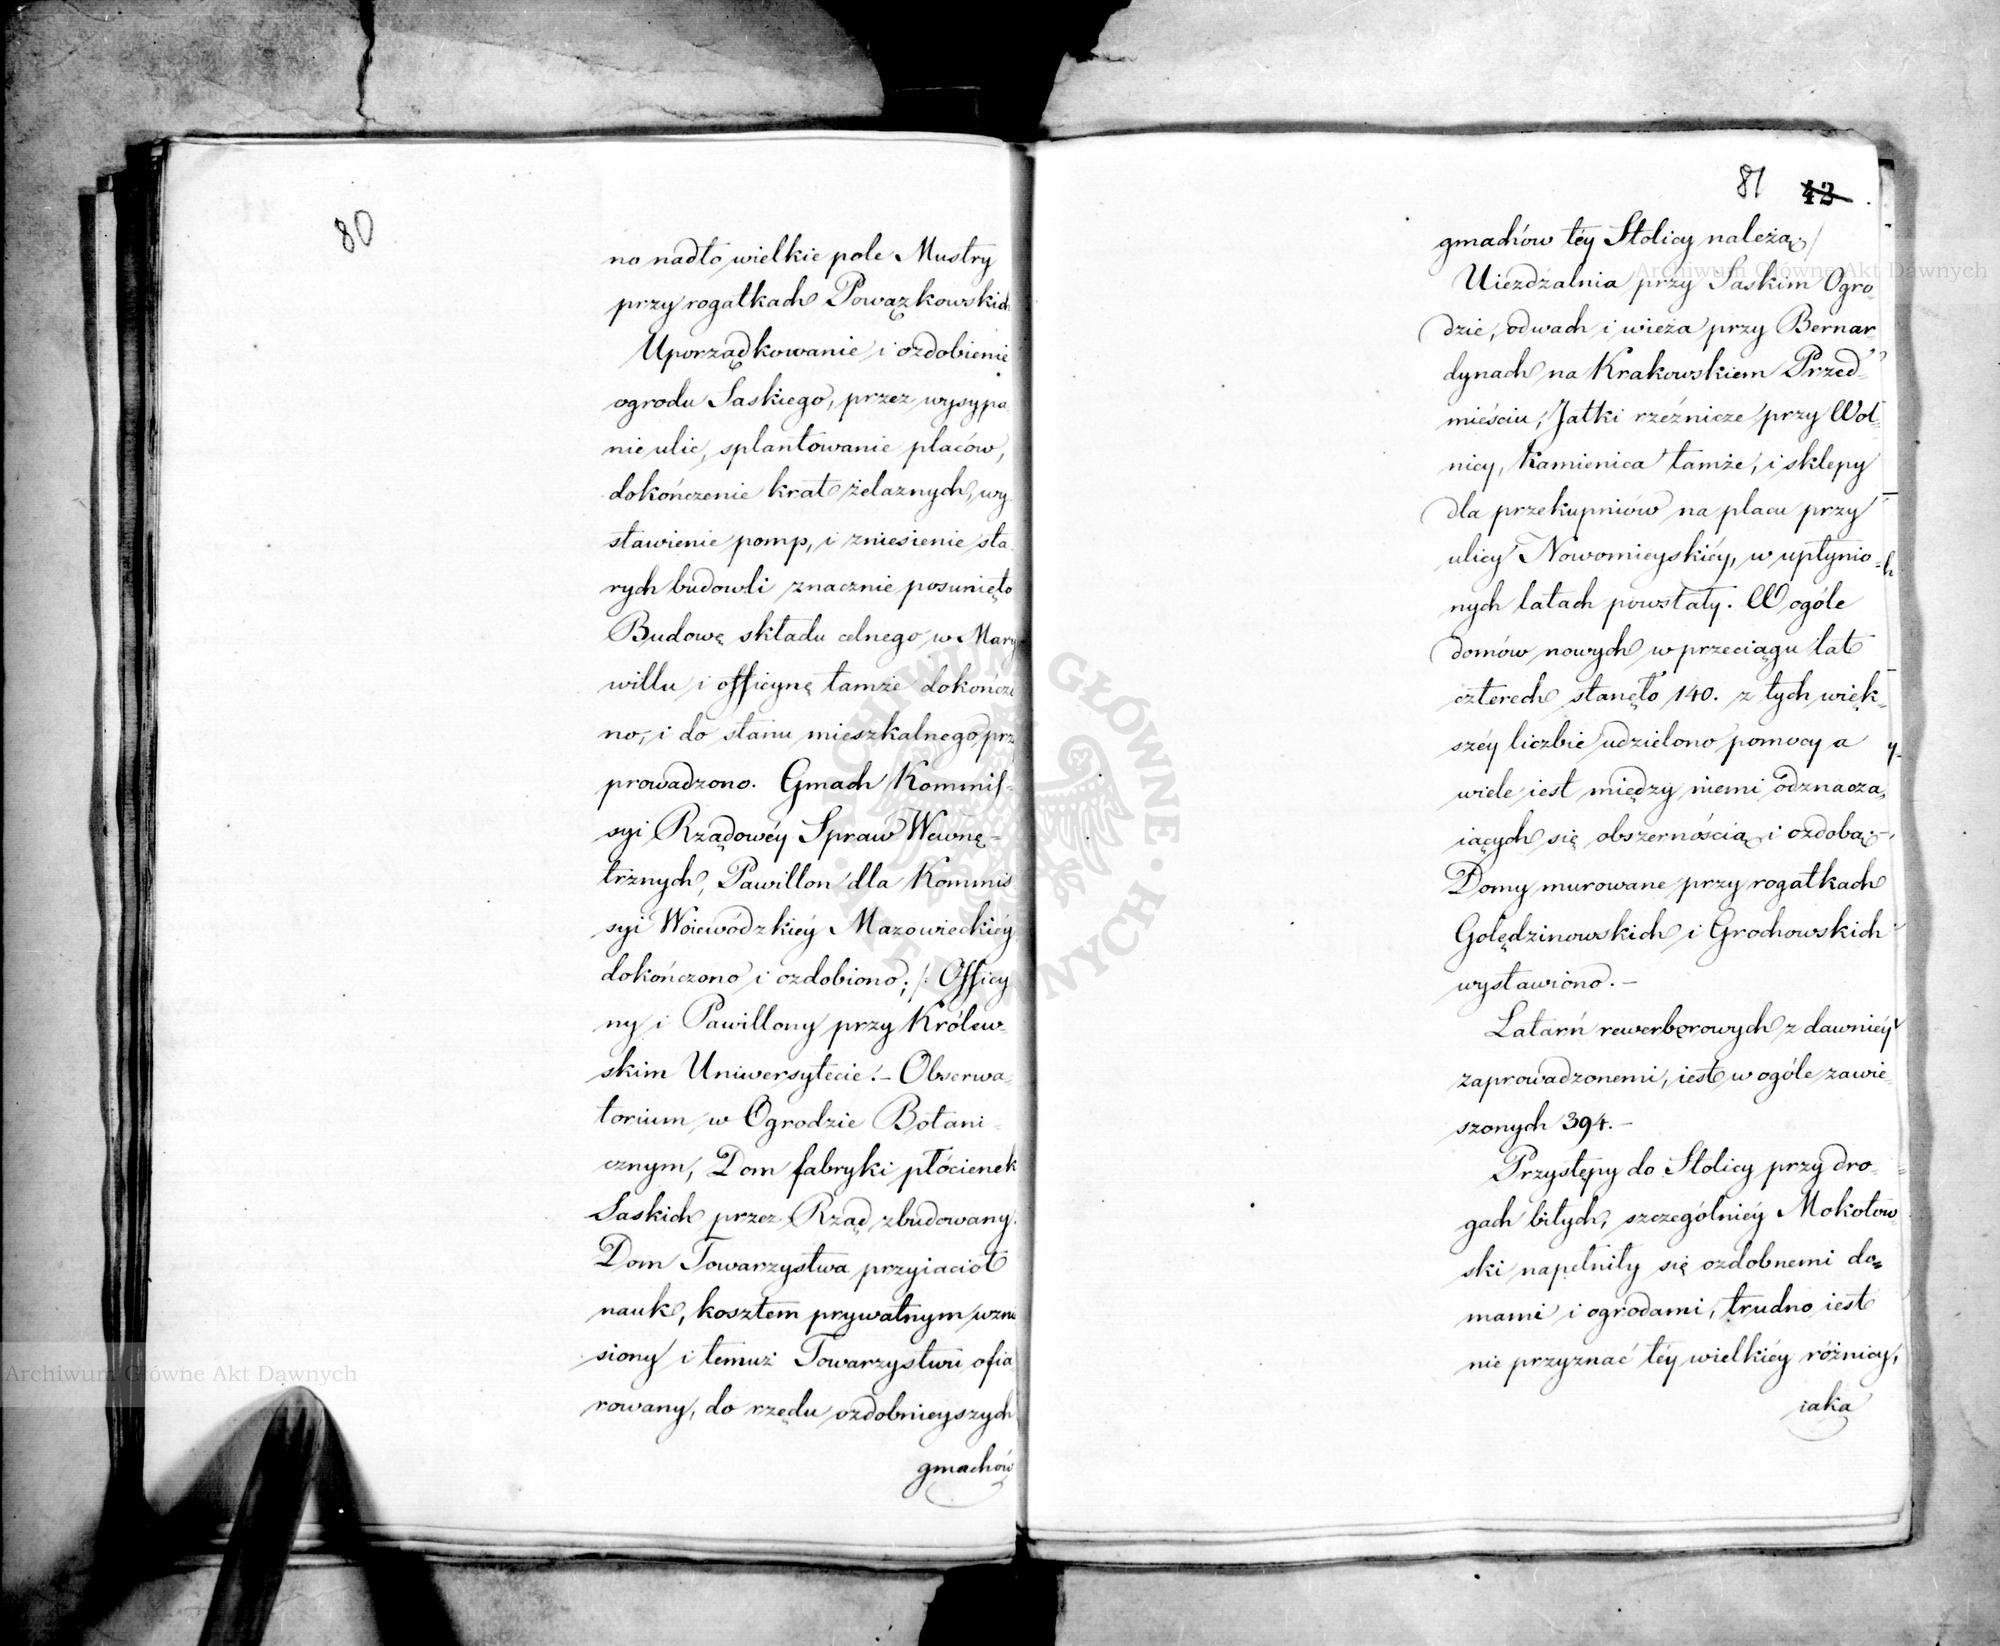 80
no nadto wielkie pole Mustry
przy rogatkach Powązkowskich
Uporządkowanie i ozdobienie
ogrodu Saskiego, przez wysypa
nie ulic, splantowanie placów,
dokończenie krat żelaznych, wy
stawienie pomp, i zniesienie sta
rych budowli znacznie posunięto
Budowę składu celnego w Mary
willu i officynę tamże dokończo
no, i do stanu mieszkalnego przy
prowadzono. Gmach Kommis-
syi Rządowéy Spraw Wewnę-
trznych, Pawillon dla Kommis
syi Woiewódzkiéy Mazowieckiéy
dokończono i ozdobiono; /. Officy
ny i Pawillony przy Królew-
skim Uniwersytecie. – Obserwa-
torium w Ogrodzie Botani-
cznym, Dom fabryki płócienek
Saskich przez Rząd zbudowany.
Dom Towarzystwa przyiaciół
nauk, kosztem prywatnym wznie
siony i temuż Towarzystwu ofia-
rowany, do rzędu ozdobnieyszych
gmachów
81 42
gmachów téy Stolicy należą. /
Uiezdżalnia przy Saskim Ogro-
dzie, odwach i wieża przy Bernar-
dynach na Krakowskiem Przed-
mieściu, Jatki rzeźnicze przy Wol-
nicy, Kamienica tamże, i sklepy
dla przekupniów na placu przy
ulicy Nowomieyskiéy, w upłynio-
nych latach powstały. W ogóle
domów nowych w przeciągu lat
czterech stanęło 140. z tych więk-
széy liczbie udzielono pomocy a
wiele iest między niemi odznacza-
iących się obszernością i ozdobą. –
Domy murowane przy rogatkach
Golędzinowskich i Grochowskich
wystawiono. –
Latarń rewerberowych z dawniéy
zaprowadzonemi, iest w ogóle zawie-
szonych 394. –
Przystępy do Stolicy przy dro-
gach bitych, szczególniéy Mokotow-
ski napełniły się ozdobnemi do-
mami i ogrodami, trudno iest
nie przyznać téy wielkiéy różnicy,
iaka
Archiwum Główne Akt Dawnych
Archiwum Główne Akt Dawnych
ARCHIWUM GŁÓWNE AKT DAWNYCH